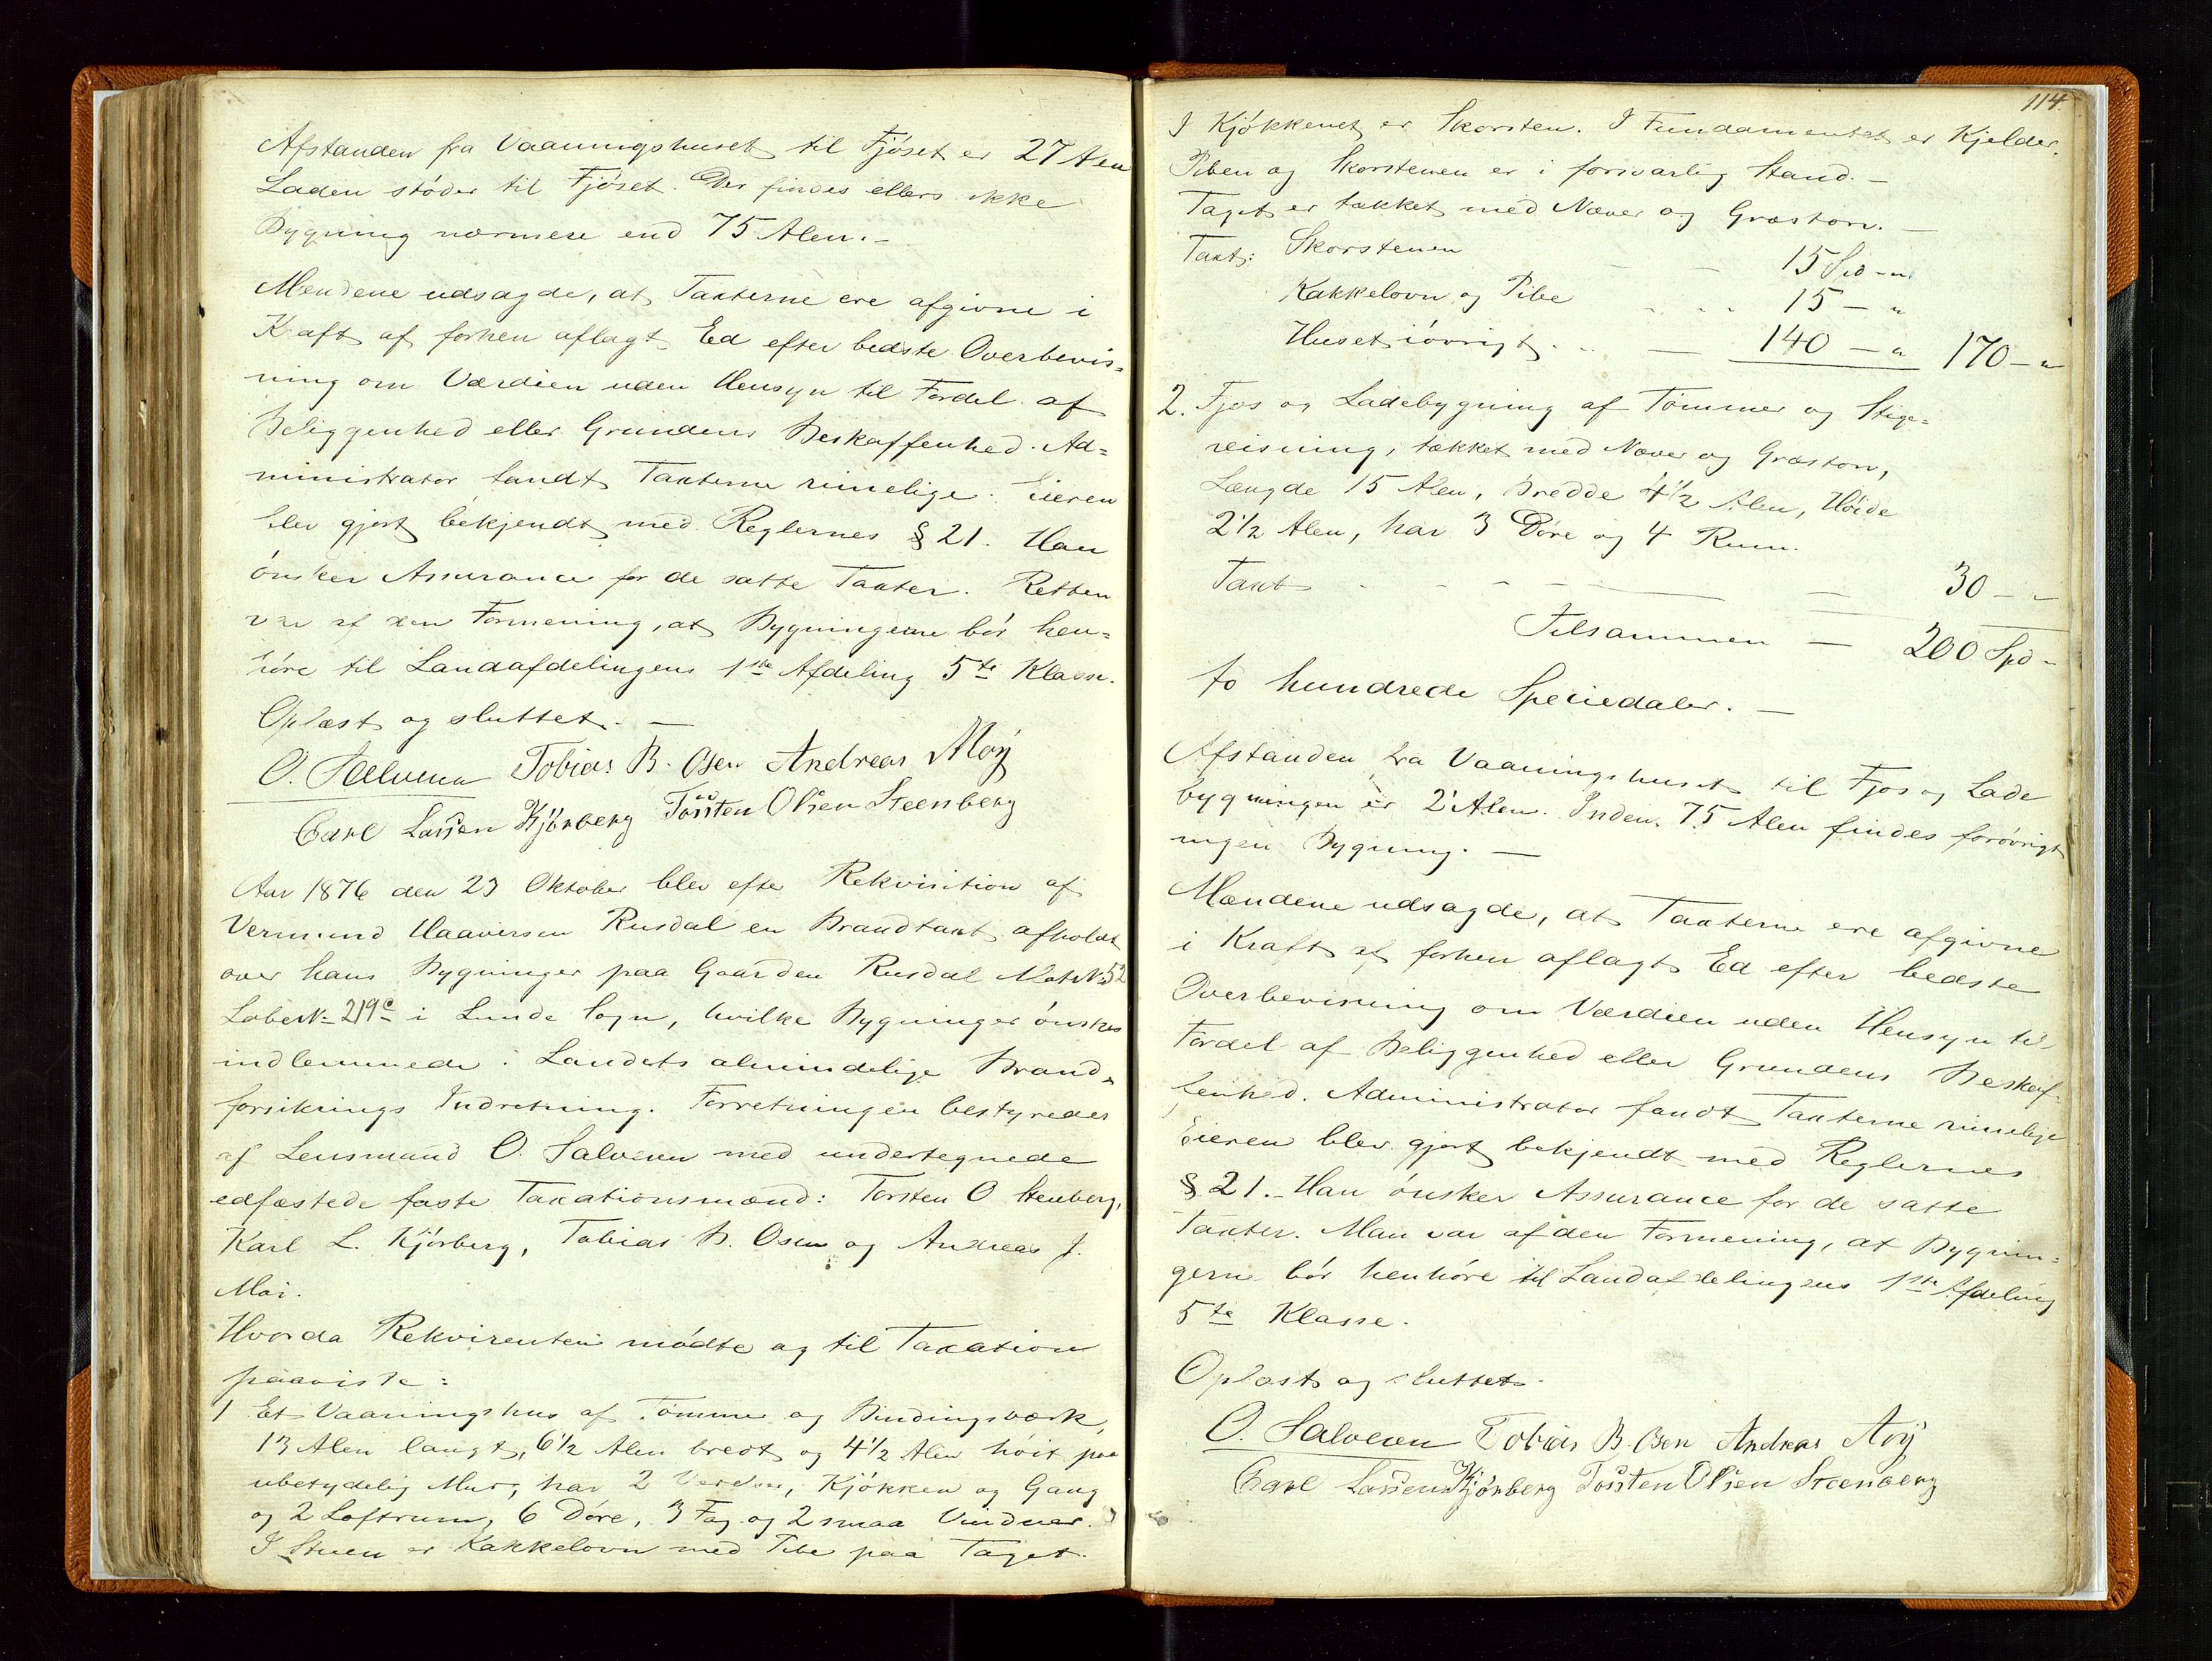 Afstanden fra Vaaningshuset til Fjöset er 27 Alen
Laden stöder til Fjöset. Der findes ellers ikke
Bygning nærmere end 75 Alen. –
Mændene udsagde, at Taxterne ere afgivne i
Kraft af forhen aflagt Ed efter bedste Overbevis=
ning om Værdien uden Hensyn til Fordel af
Beliggenhed eller Grundens Beskaffenhed. Ad=
ministrator fandt Taxterne rimelige. Eieren
blev gjort bekjendt med Reglernes § 21. Han
önsker Assurance for de satte Taxter. Retten
var af den Formening, at Bygningerne bör hen=
höre til Landafdelingens 1ste Afdeling 5te Klasse.
Oplæst og sluttet. –
O. Salvesen Tobias B. Osen Andreas Moÿ
Carl Lassen Kjörberg Tosten Olsen Steenberg
Aar 1876 den 23 Oktober blev efter Rekvisition af
Vermund Haaversen Rusdal en Brandtaxt afholdt
over hans Bygninger paa Gaarden Rusdal MatrN: 52
LöbeN: 219c i Lunde Sogn, hvilke Bygninger önskes
indlemmede i Landets almindelige Brand=
forsikrings Indretning. Forretningen bestyredes
af Lensmand O. Salvesen med undertegnede
edfæstede faste Taxationsmænd: Torsten O Stenberg,
Karl L. Kjörberg, Tobias B. Osen og Andreas J.
Moi.
Hvorda Rekvirenten mödte og til Taxation
paaviste:
1 Et Vaaningshus af Tömmer og Bindingsværk,
13 Alen langt, 6 1/2 Alen bredt og 4 1/2 Alen höit paa
ubetydelig Mur, har 2 Værelser, Kjökken og Gang
og 2 Loftrum, 6 Döre, 3 Fag og 2 smaa Vinduer.
I Stuen er Kakkelovn med Pibe paa Taget.
114.
I Kjökkenet er Skorsten. I Fundamentet er Kjelder.
Piben og Skorstenen er i forsvarlig Stand. –
Taget er tækket med Næver og Græstorv. –
Taxt: Skorstenen – – 15 Spd – "
Kakkelovn og Pibe . . . . 15 – "
Huset iövrigt . . . – 140 – " 170 – "
2. Fjös og Ladebygning af Tömmer og Stige=
reisning, tækket med Næver og Græstorv,
Længde 15 Alen, Bredde 4 1/2 Alen, Höide
2 1/2 Alen, har 3 Döre og 4 Rum.
Taxt – – – – – 30 – "
Tilsammen – 200 Spd "
to hundrede Speciedaler. –
Afstanden fra Vaaningshuset til Fjös og Lade
bygningen er 2 Alen. Inden 75 Alen findes forövrigt
ingen Bygning. –
Mændene udsagde, at Taxterne ere afgivne
i Kraft af forhen aflagt Ed efter bedste
Overbevisning om Værdien uden Hensyn til
Fordel af Beliggenhed eller Grundens Beskaf=
fenhed. Administrator fandt Taxterne rimelige
Eieren blev gjort bekjendt med Reglernes
§ 21. – Han önsker Assurance for de satte
Taxter. Man var af den Formening, at Bygnin=
gern bör henhöre til Landafdelingens 1ste Afdeling
5te Klasse.
Oplæst og sluttet.
O. Salvesen Tobias B. Osen Andreas Moÿ
Carl Lassen Kjörberg Tosten Olsen Steenberg